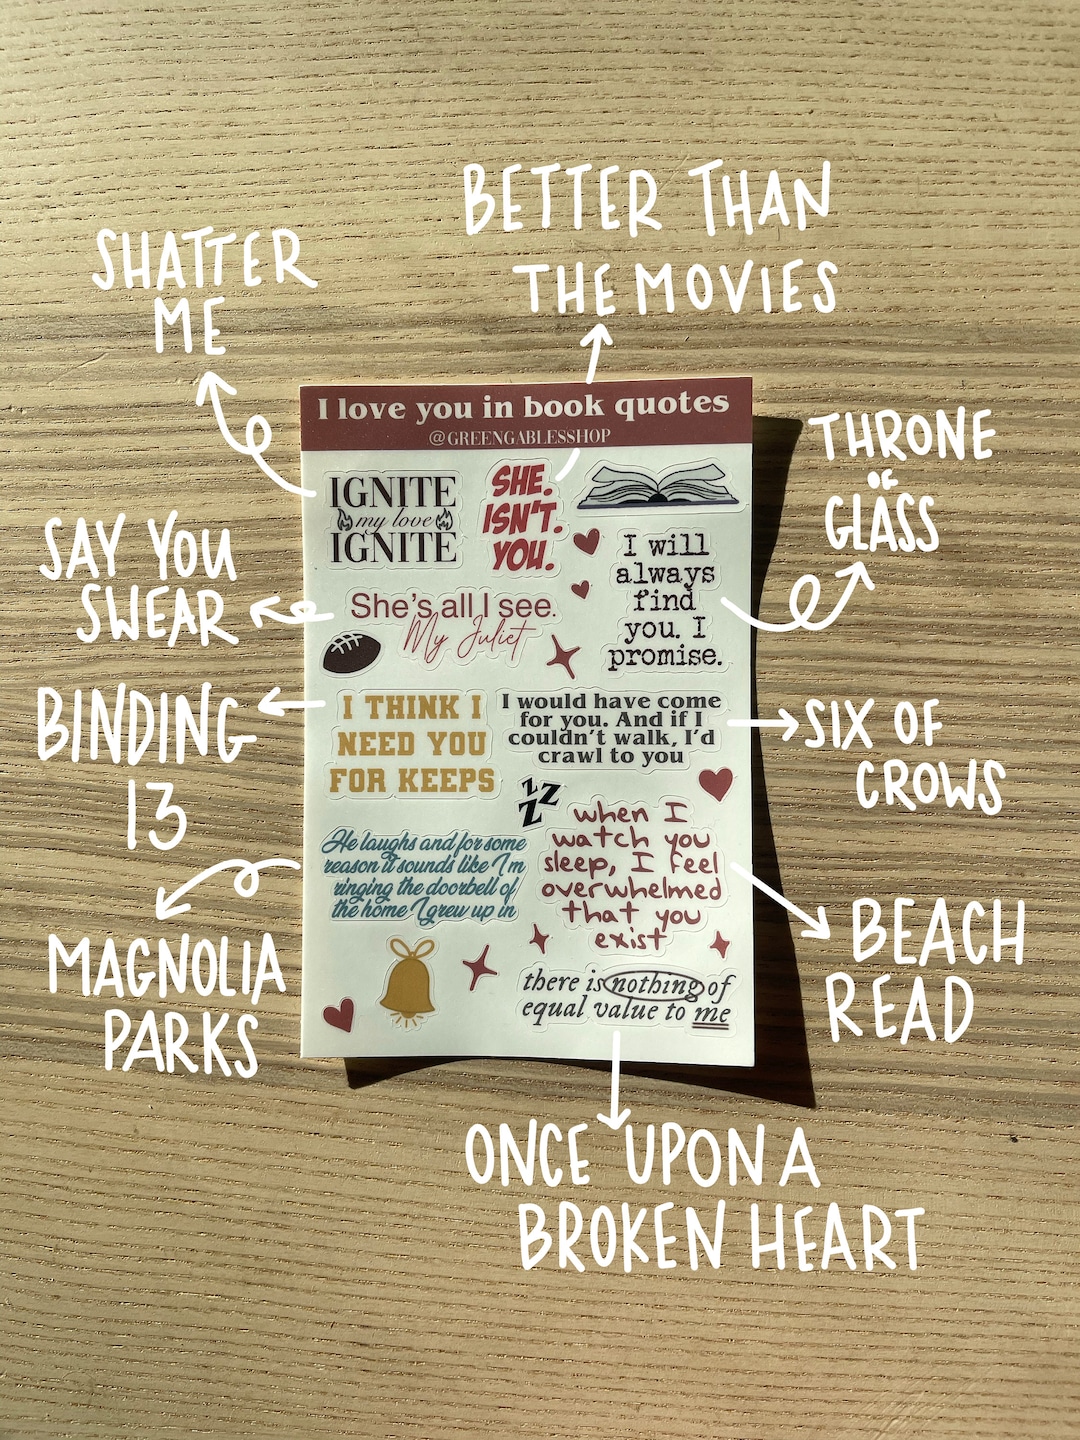 BETTER THAN
THE MOVIES
SHATTER
ME
I love you in book quotes
@GREENGABLESSHOP
THRONE
OF
GLASS
IGNITE
my love
IGNITE
SHE.
ISN'T.
YOU.
I will
always
find
you. I
promise.
SAY YOU
SWEAR
She's all I see.
My Juliet
BINDING
13
I THINK I
NEED YOU
FOR KEEPS
I would have come
for you. And if I
couldn't walk, I'd
crawl to you
SIX OF
CROWS
z
z
z
He laughs and for some
reason it sounds like I'm
ringing the doorbell of
the home I grew up in
when I
watch you
sleep, I feel
overwhelmed
that you
exist
MAGNOLIA
PARKS
BEACH
READ
there is nothing of
equal value to me
ONCE UPON A
BROKEN HEART